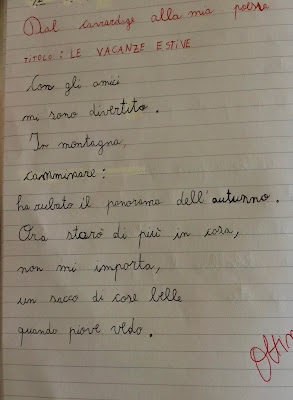 Dal caviardage alla mia poesia
TITOLO: LE VACANZE ESTIVE
Con gli amici
mi sono divertito.
In montagna,
camminare:
ha rubato il panorama dell'autunno.
Ora starò di più in casa,
non mi importa,
un sacco di cose belle
quando piove vedo.